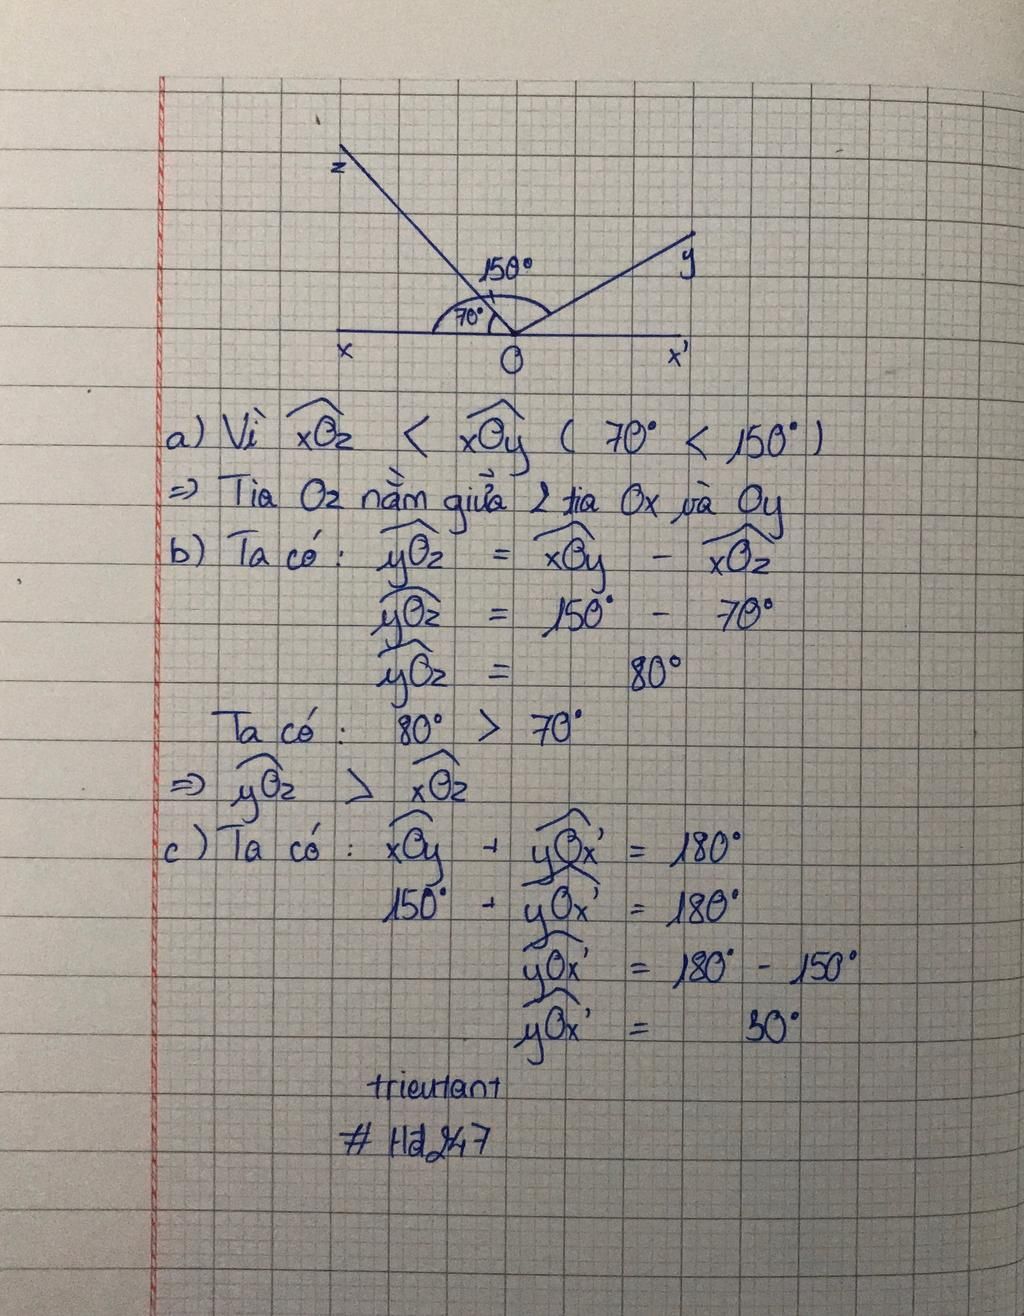 z
150°
y
70°
x
O
x'
a) Vì xOz < xOy ( 70° < 150° )
=> Tia Oz nằm giữa 2 tia Ox và Oy
b) Ta có : yOz = xOy - xOz
yOz = 150° - 70°
yOz = 80°
Ta có : 80° > 70°
=> yOz > xOz
c) Ta có : xOy + yOx' = 180°
150° + yOx' = 180°
yOx' = 180° - 150°
yOx' = 30°
trieutant
# Hd247